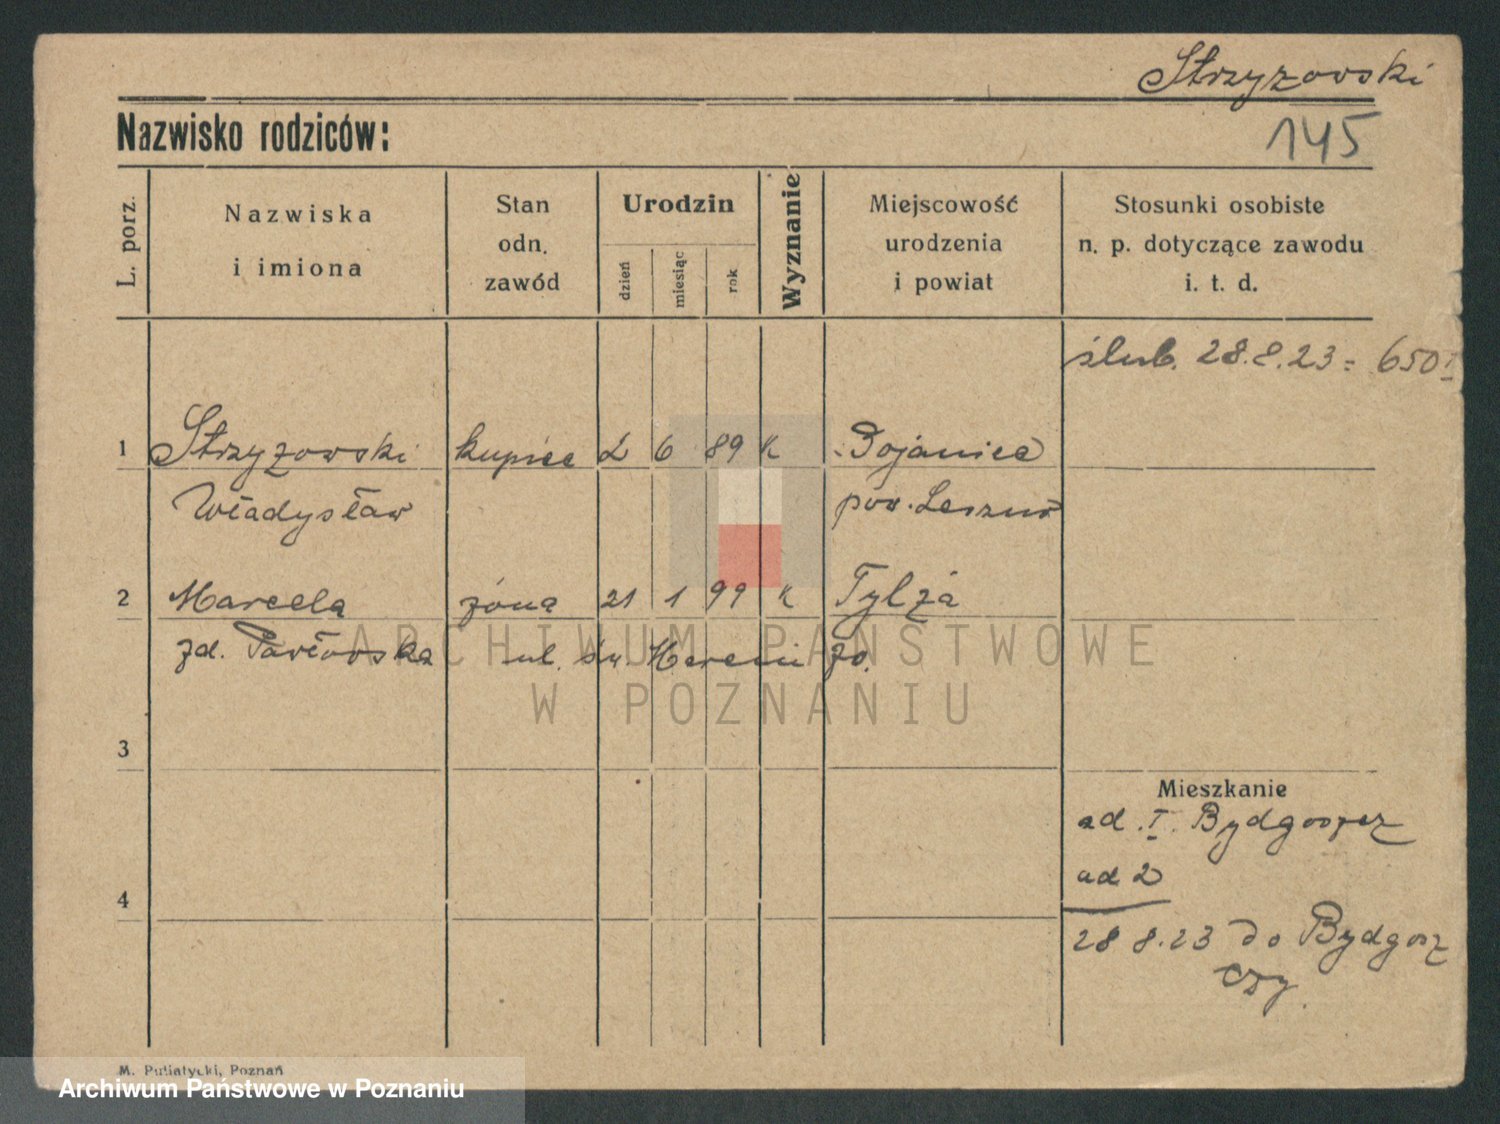 Strzyzowski
145
Nazwisko rodziców:
L. porz.
Nazwiska
i imiona
Stan
odn.
zawód
Urodzin
dzień
miesiąc
rok
Wyznanie
Miejscowość
urodzenia
i powiat
Stosunki osobiste
n. p. dotyczące zawodu
i. t. d.
ślub. 28.8.23 = 650 I
1 Strzyzowski kupiec 2 6 89 K Bojanice
Władysław pow. Leszno
2 Marcela żona 21 1 99 K Tylża
zd. Pawłowska ul. św. Marcin 70.
3
4
Mieszkanie
ad. I. Bydgoszcz
ad 2
28 8.23 do Bydgosz
czy.
M. Putiatycki, Poznań
ARCHIWUM PAŃSTWOWE
W POZNANIU
Archiwum Państwowe w Poznaniu